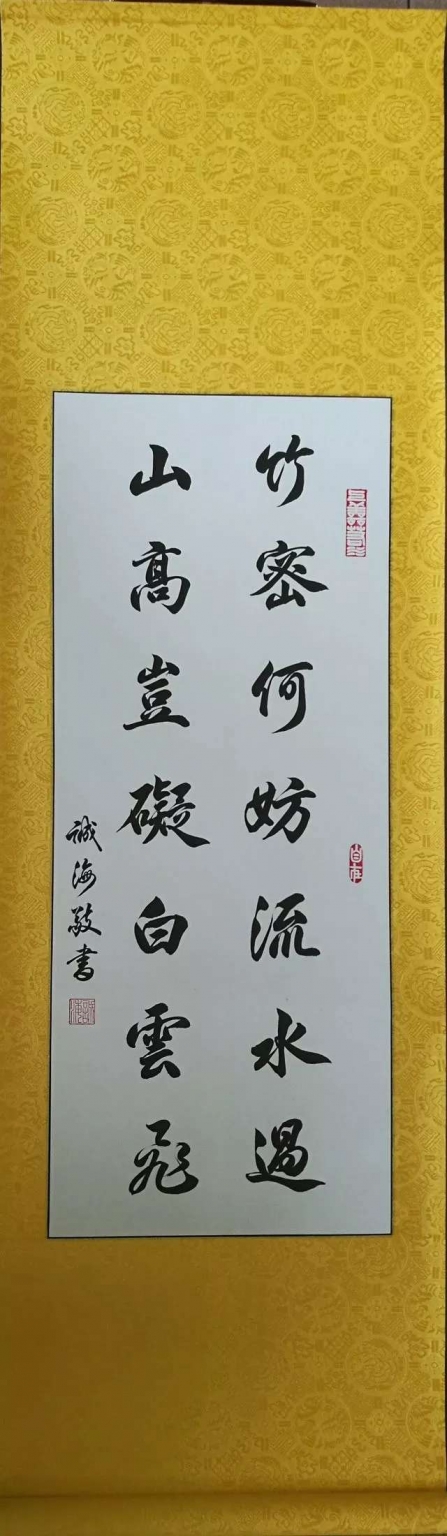 竹密何妨流水過
山高豈礙白雲飛
誠海敬書
自在